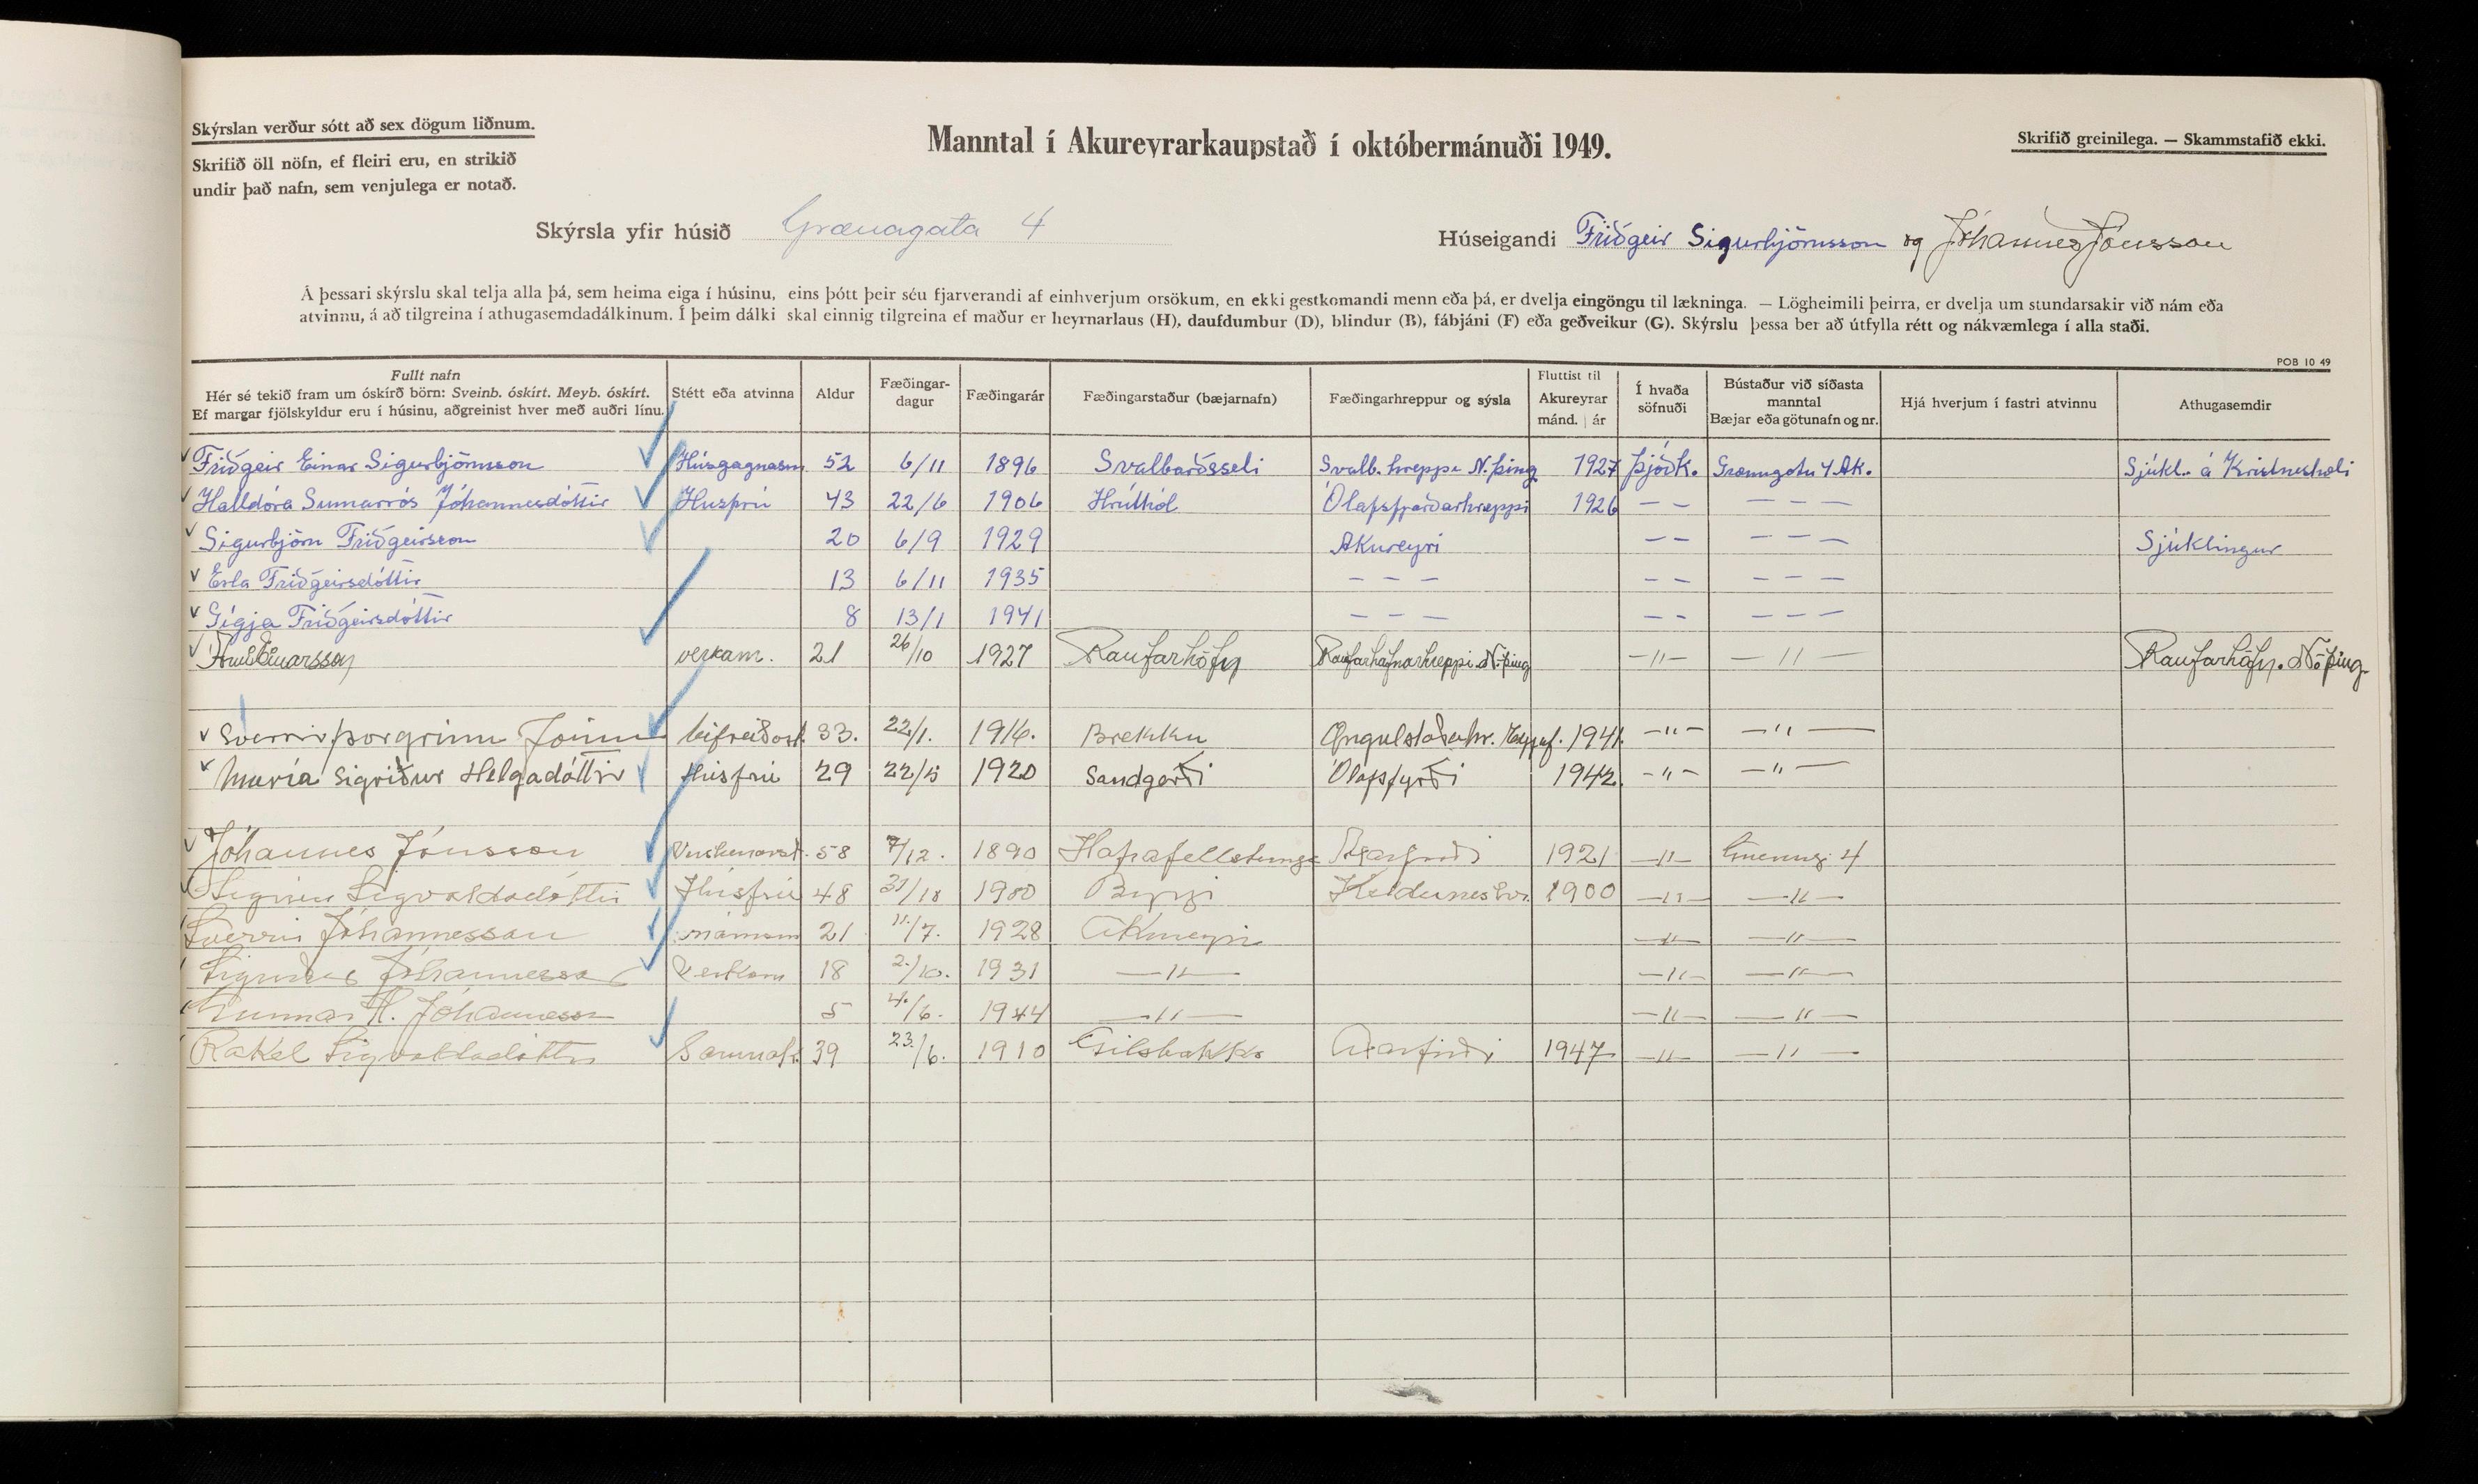 Skýrslan verður sótt að sex dögum liðnum.
Skrifið öll nöfn, ef fleiri eru, en strikið
undir það nafn, sem venjulega er notað.
Manntal í Akureyrarkaupstað í októbermánuði 1949.
Skrifið greinilega. — Skammstafið ekki.
Skýrsla yfir húsið Grænagata 4
Húseigandi Friðgeir Sigurbjörnsson og Jóhannes Jónsson
Á þessari skýrslu skal telja alla þá, sem heima eiga í húsinu, eins þótt þeir séu fjarverandi af einhverjum orsökum, en ekki gestkomandi menn eða þá, er dvelja eingöngu til lækninga. — Lögheimili þeirra, er dvelja um stundarsakir við nám eða
atvinnu, á að tilgreina í athugasemdadálkinum. Í þeim dálki skal einnig tilgreina ef maður er heyrnarlaus (H), daufdumbur (D), blindur (B), fábjáni (F) eða geðveikur (G). Skýrslu þessa ber að útfylla rétt og nákvæmlega í alla staði.
POB 10 49
Fullt nafn
Hér sé tekið fram um óskírð börn: Sveinb. óskírt. Meyb. óskírt.
Ef margar fjölskyldur eru í húsinu, aðgreinist hver með auðri línu.
Stétt eða atvinna
Aldur
Fæðingar-
dagur
Fæðingarár
Fæðingarstaður (bæjarnafn)
Fæðingarhreppur og sýsla
Fluttist til
Akureyrar
mánd. | ár
Í hvaða
söfnuði
Bústaður við síðasta
manntal
Bæjar eða götunafn og nr.
Hjá hverjum í fastri atvinnu
Athugasemdir
Friðgeir Einar Sigurbjörnsson Húsgagnasm. 52 6/11 1896 Svalbarðsseli Svalb. hreppi N. þing. 1927 Þjóðk. Grænugötu 4 Ak. Sjúkl. á Kristneshæli
Halldóra Sumarrós Jóhannesdóttir Húsfrú 43 22/6 1906 Hrúthól Ólafsfjarðarhreppi 1926 – – – – –
Sigurbjörn Friðgeirsson 20 6/9 1929 Akureyri – – – – – Sjúklingur
Erla Friðgeirsdóttir 13 6/11 1935 – – – – – – – –
Gígja Friðgeirsdóttir 8 13/1 1941 – – – – – – – –
Einarsson verkam. 21 26/10 1927 Raufarhöfn Raufarhafnarhreppi N-þing –"– –"– Raufarhöfn. N-þing.
Sverrir Þorgrímur bifreiðast. 33. 22/1. 1916. Brekku Öngulstaðahr. 1941. –"– –"–
María Sigríður Helgadóttir Húsfrú 29 22/5 1920 Sandgerði Ólafsfyrði 1942. –"– –"–
Jóhannes Jónsson 58 7/12. 1890 Hafrafellstunga Axarfirði 1921 –"– Grænug. 4
Sigrún Sigvaldadóttir Húsfrú 48 31/10 1900 Byrgi Kelduneshr. 1900 –"– –"–
Sverrir Jóhannesson 21 11./7. 1928 Akureyri –"– –"–
Sigurður Jóhannesson Verkam 18 2./10. 1931 –"– –"– –"–
Gunnar H. Jóhannesson 5 4./6. 1944 –"– –"– –"–
Rakel Sigvaldadóttir Saumak. 39 23./6. 1910 Gilsbakka Axarfirði 1947 –"– –"–